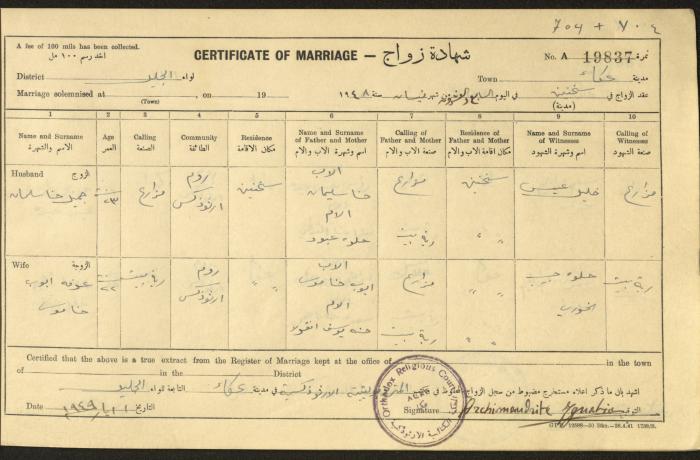 704 + ٧٠٤
A fee of 100 mils has been collected.
اخذ رسم ١٠٠ مل
CERTIFICATE OF MARRIAGE — شهادة زواج
No. A 19837 نمرة
District لواء الجليل
Town مدينة عكاء
Marriage solemnised at , on 19
(Town)
عقد الزواج في سخنين في اليوم السابع والعشرون شهر نيسان سنة ١٩٤٨
(مدينة)
1 2 3 4 5 6 7 8 9 10
Name and Surname Age Calling Community Residence Name and Surname of Father and Mother Calling of Father and Mother Residence of Father and Mother Name and Surname of Witnesses Calling of Witnesses
الاسم والشهرة العمر الصنعة الطائفة مكان الاقامة اسم وشهرة الاب والام صنعة الاب والام مكان اقامة الاب والام اسم وشهرة الشهود صنعة الشهود
Husband الزوج
جميل حنا سليمان سنة ٢٣ مزارع روم ارثوذكس سخنين الاب حنا سليمان مزارع سخنين خليل عيسى مزارع
الام حلوه عبود ربة بيت " "
Wife الزوجة
ايوب حنا موسى سنة ٢٢ ربة بيت روم ارثوذكس " " الاب ايوب حنا موسى مزارع " " حلوه حبيب الخوري ربة بيت
الام حنه يوسف انقولا ربة بيت " "
Certified that the above is a true extract from the Register of Marriage kept at the office of in the town
of in the District
اشهد بان ما ذكر اعلاه مستخرج مضبوط من سجل الزواج المحفوظ في الارثوذكسية في مدينة عكاء التابعة للواء الجليل
Date ١ ايار ١٩٤٩ التاريخ
Signature Archimandrite Ignatios التوقيع
Orthodox Religious Court
ACRE
عكا